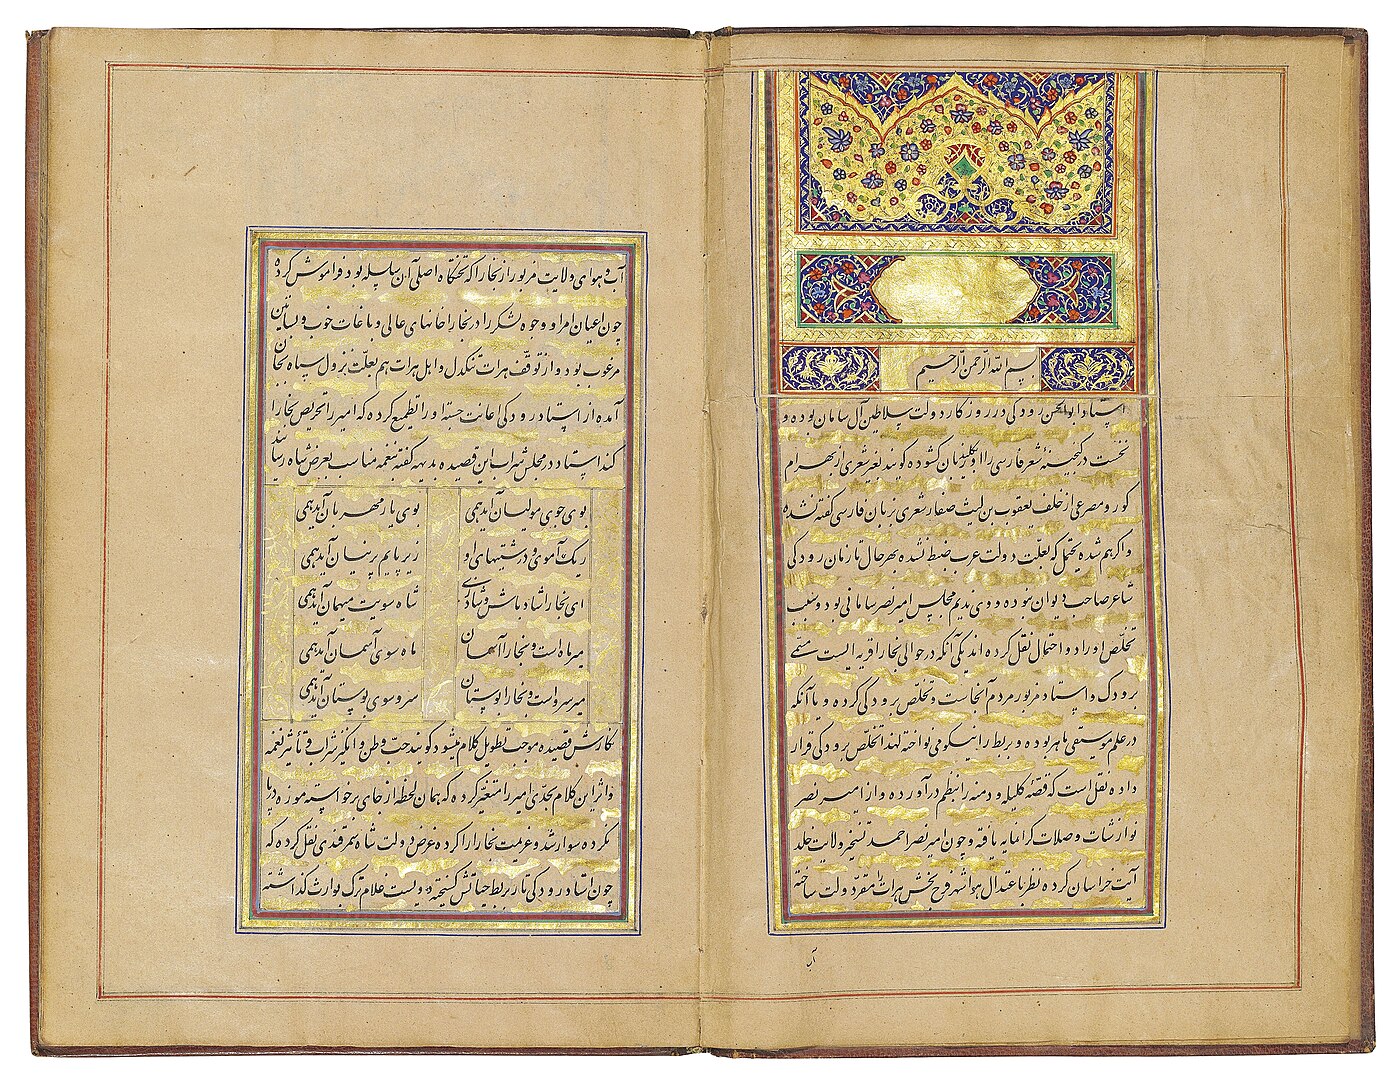 بسم الله الرحمن الرحیم
استاد ابوالحسن رودکی در روزکار دولت سلاطین آل سامان بوده و
نخست در کنجینهٔ شعر فارسی را او بکلید زبان کشوده کویند بغیر شعری از بهرام
کور و مصرعی از خلف یعقوب بن لیث صفار شعری بزبان فارسی کفته نشده
و اکر هم شده یحتمل که بعلّت دولت عرب ضبط نشده بهر حال تا زمان رودکی
شاعر صاحب دیوان نبوده و وی ندیم مجلس امیر نصر سامانی بود و سبب
تخلّص او را دو احتمال نقل کرده اند یکی آنکه در حوالی بخارا قریه ایست مسمّی
برودک و استاد مزبور مردم آنجاست و تخلّص برودکی کرده و یا آنکه
در علم موسیقی ماهر بوده و بربط را نیکو می نواخته لهذا تخلّص برودکی قرار
داده نقل است که قصّهٔ کلیله و دمنه را بنظم در آورده و از امیر نصر
نوازشات و صلات کرانمایه یافته و چون امیر نصر احمد تسخیر ولایت خلد
آیت خراسان کرده نظر باعتدال هوا شهر فرح بخش هرات را مقرّ دولت ساخته
آب
آب و هوای ولایت مزبور از بخارا که تختکاه اصلی آن سلسله بود فراموش کرده
چون اعیان امرا و وجوه لشکر را در بخارا خانهای عالی و باغات خوب و بساتین
مرغوب بود و از توقّف هرات تنکدل و اهل هرات هم بعلّت نزول سپاه بجان
آمده از استاد رودکی اعانت جسته او را تطمیع کرده که امیر را تحریص بخارا
کند استاد در مجلس شراب این قصیده بدیهه کفته بنغمه مناسب بعرض شاه رسانید
بوی جوی مولیان آید همی	بوی یار مهربان آید همی
ریک آموی و درشتیهای او	زیر پایم پرنیان آید همی
ای بخارا شاد باش و شاد زی	شاه سویت میهمان آید همی
میر ماه است و بخارا آسمان	ماه سوی آسمان آید همی
میر سرو است و بخارا بوستان	سرو سوی بوستان آید همی
نکارش قصیده موجب تطویل کلام میشود کویند حبّ وطن و انکیز شراب و تأثیر نغمه
و اثر این کلام بحدّی امیر را متغیّر کرده که همان لحظه از جای برخواسته موزه در پا
نکرده سوار شد و عزیمت بخارا را کرده غرض دولت شاه سمرقندی نقل کرده که
چون استاد رودکی تار بربط حیاتش کسیخته دویست غلام ترک بوارث کذاشته